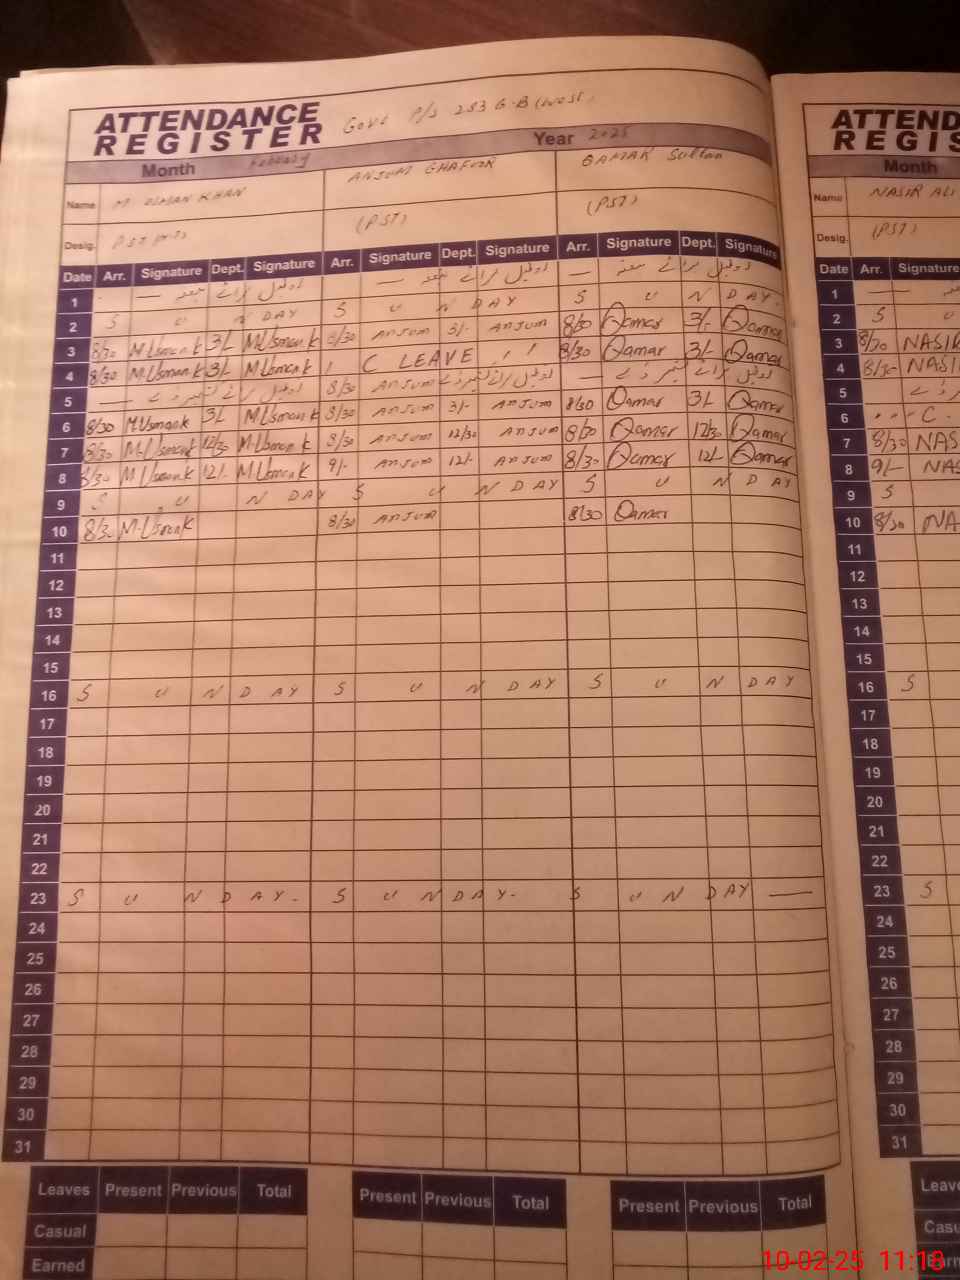 ATTENDANCE REGISTER Govt P/S 283 G-B (West)
Month February Year 2025
Name M USMAN KHAN ANJUM GHAFOOR QAMAR Sultan
Desig. PST (PST) (PST)
Date Arr. Signature Dept. Signature Arr. Signature Dept. Signature Arr. Signature Dept. Signature
1
2 S U N DAY S U N DAY S U N DAY.
3 8/30 M.Usmank 3/- M.Usmank 8/30 ANJUM 3/- ANJUM 8/30 Qamar 3/- Qamar
4 8/30 M.Usmank 3/- M.Usmank C LEAVE 8/30 Qamar 3/- Qamar
5
6 8/30 M.Usmank 3/- M.Usmank 8/30 ANJUM 3/- ANJUM 8/30 Qamar 3/- Qamar
7 8/30 M.Usmank 12/30 M.Usmank 8/30 ANJUM 12/30 ANJUM 8/30 Qamar 12/30 Qamar
8 8/30 M.Usmank 12/- M.Usmank 9/- ANJUM 12/- ANJUM 8/30 Qamar 12/- Qamar
9 S U N DAY S U N DAY S U N DAY
10 8/30 M.Usmank 8/30 ANJUM 8/30 Qamar
11
12
13
14
15
16 S U N D AY S U N D AY S U N DAY
17
18
19
20
21
22
23 S U N D AY. S U N DAY. S U N DAY —
24
25
26
27
28
29
30
31
Leaves Present Previous Total Present Previous Total Present Previous Total
Casual
Earned
ATTEND
REGIS
Month
Name NASIR ALI
Desig. (PST)
Date Arr. Signature
1
2 S
3 8/30 NASIR
4 8/30 NASI
5
6 C.
7 8/30 NAS
8 9/- NAS
9 S
10 8/30 NA
11
12
13
14
15
16 S
17
18
19
20
21
22
23 S
24
25
26
27
28
29
30
31
Leave
Casu
10-02-25 11:18